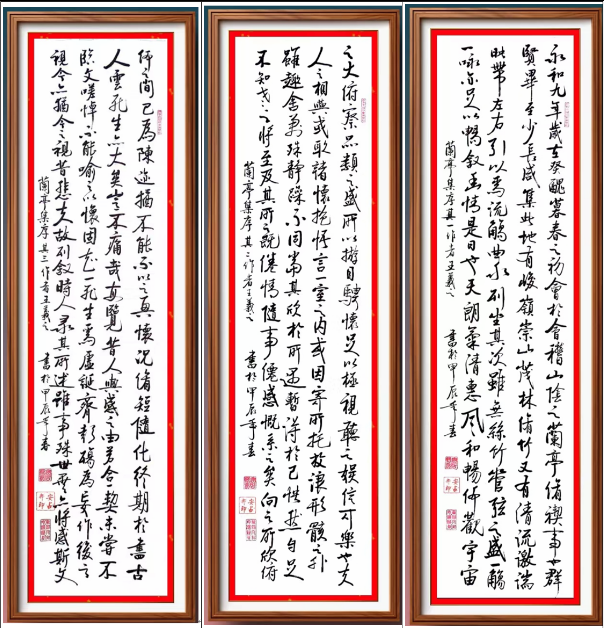 永和九年歲在癸醜暮春之初會於會稽山陰之蘭亭脩禊事也群
賢畢至少長咸集此地有峻嶺崇山茂林脩竹又有清流激湍
映帶左右引以為流觴曲水列坐其次雖無絲竹管弦之盛一觴
一咏亦足以暢敘幽情是日也天朗氣清惠風和暢仰觀宇宙
蘭亭集序其一作者王羲之 書於甲辰年春
之大俯察品類之盛所以遊目騁懷足以極視聽之娛信可樂也夫
人之相與或取諸懷抱悟言一室之內或因寄所托放浪形骸之外
雖趣舍萬殊靜躁不同當其欣於所遇暫得於己快然自足
不知老之將至及其所之既倦情隨事遷感慨系之矣向之所欣俯
蘭亭集序其二作者王羲之 書於甲辰年春
仰之間已為陳迹猶不能不以之興懷況脩短隨化終期於盡古
人雲死生亦大矣豈不痛哉每覽昔人興感之由若合契未嘗不
臨文嗟悼不能喻之以懷固知一死生為虛誕齊彭殤為妄作後之
視今亦猶今之視昔悲夫故列敘時人录其所述雖事殊世異亦將感斯文
蘭亭集序其三作者王羲之 書於甲辰年春